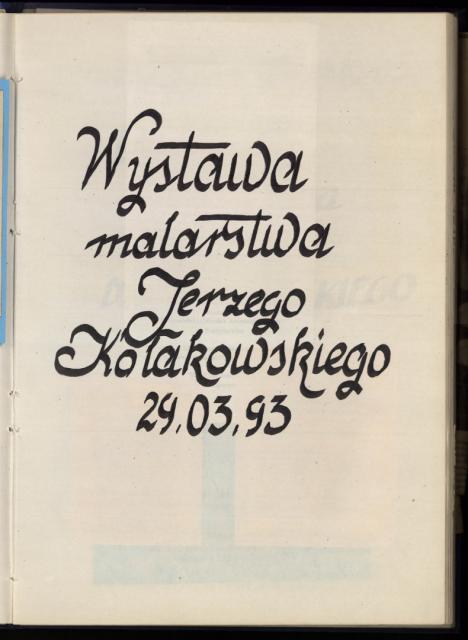 Wystawa
malarstwa
Jerzego
Kołakowskiego
29.03.93